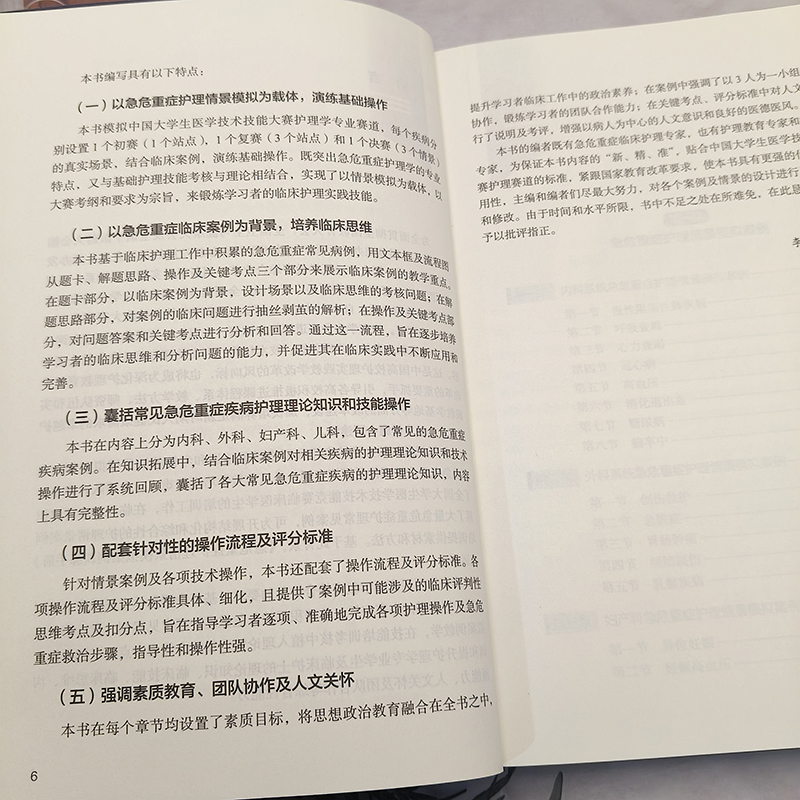 本书编写具有以下特点：
（一）以急危重症护理情景模拟为载体，演练基础操作
本书模拟中国大学生医学技术技能大赛护理学专业赛道，每个疾病分
别设置1个初赛（1个站点），1个复赛（3个站点）和1个决赛（3个情景）
的真实场景，结合临床案例，演练基础操作。既突出急危重症护理学的专业
特点，又与基础护理技能考核与理论相结合，实现了以情景模拟为载体，以
大赛考纲和要求为宗旨，来锻炼学习者的临床护理实践技能。
（二）以急危重症临床案例为背景，培养临床思维
本书基于临床护理工作中积累的急危重症常见病例，用文本框及流程图
从题卡、解题思路、操作及关键考点三个部分来展示临床案例的教学重点。
在题卡部分，以临床案例为背景，设计场景以及临床思维的考核问题；在解
题思路部分，对案例的临床问题进行抽丝剥茧的解析；在操作及关键考点部
分，对问题答案和关键考点进行分析和回答。通过这一流程，旨在逐步培养
学习者的临床思维和分析问题的能力，并促进其在临床实践中不断应用和
完善。
（三）囊括常见急危重症疾病护理理论知识和技能操作
本书在内容上分为内科、外科、妇产科、儿科，包含了常见的急危重症
疾病案例。在知识拓展中，结合临床案例对相关疾病的护理理论知识和技术
操作进行了系统回顾，囊括了各大常见急危重症疾病的护理理论知识，内容
上具有完整性。
（四）配套针对性的操作流程及评分标准
针对情景案例及各项技术操作，本书还配套了操作流程及评分标准。各
项操作流程及评分标准具体、细化，且提供了案例中可能涉及的临床评判性
思维考点及扣分点，旨在指导学习者逐项、准确地完成各项护理操作及急危
重症救治步骤，指导性和操作性强。
（五）强调素质教育、团队协作及人文关怀
本书在每个章节均设置了素质目标，将思想政治教育融合在全书之中，
6
提升学习者临床工作中的政治素养；在案例中强调了以3人为一小组
协作，锻炼学习者的团队合作能力；在关键考点、评分标准中对人文
行了说明及考评，增强以病人为中心的人文意识和良好的医德医风。
本书的编者既有急危重症临床护理专家，也有护理教育专家和
专家，为保证本书内容的“新、精、准”，贴合中国大学生医学技
赛护理赛道的标准，紧跟国家教育改革要求，使本书具有更强的
用性，主编和编者们尽最大努力，对各个案例及情景的设计进行
和修改。由于时间和水平所限，书中不足之处在所难免，在此恳
予以批评指正。